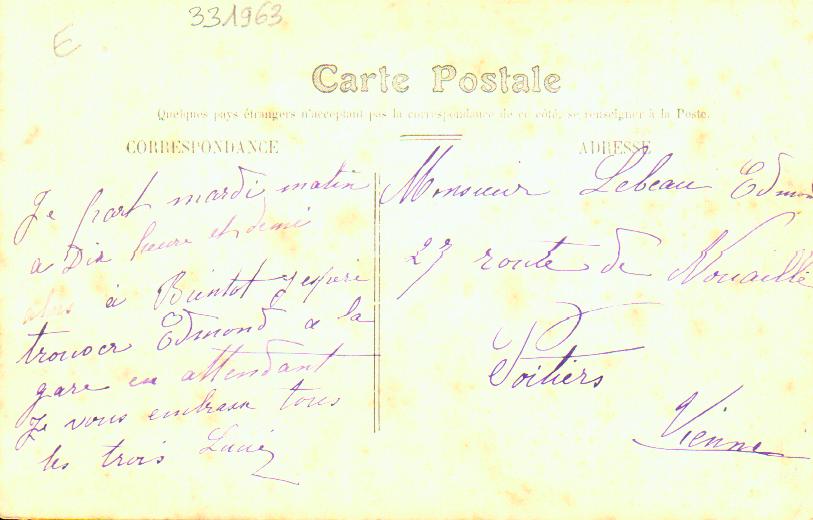 331963
E
Carte Postale
Quelques pays étrangers n'acceptant pas la correspondance de ce côté, se renseigner à la Poste.
CORRESPONDANCE
Je part mardi matin
a Dix heure et demi
alors à Bientot j'espère
trouver Edmond a la
gare en attendant
Je vous embrasse tous
les trois Lucie
ADRESSE
Monsieur Lebeau Edmond
27 route de Nouaillé
Poitiers
Vienne